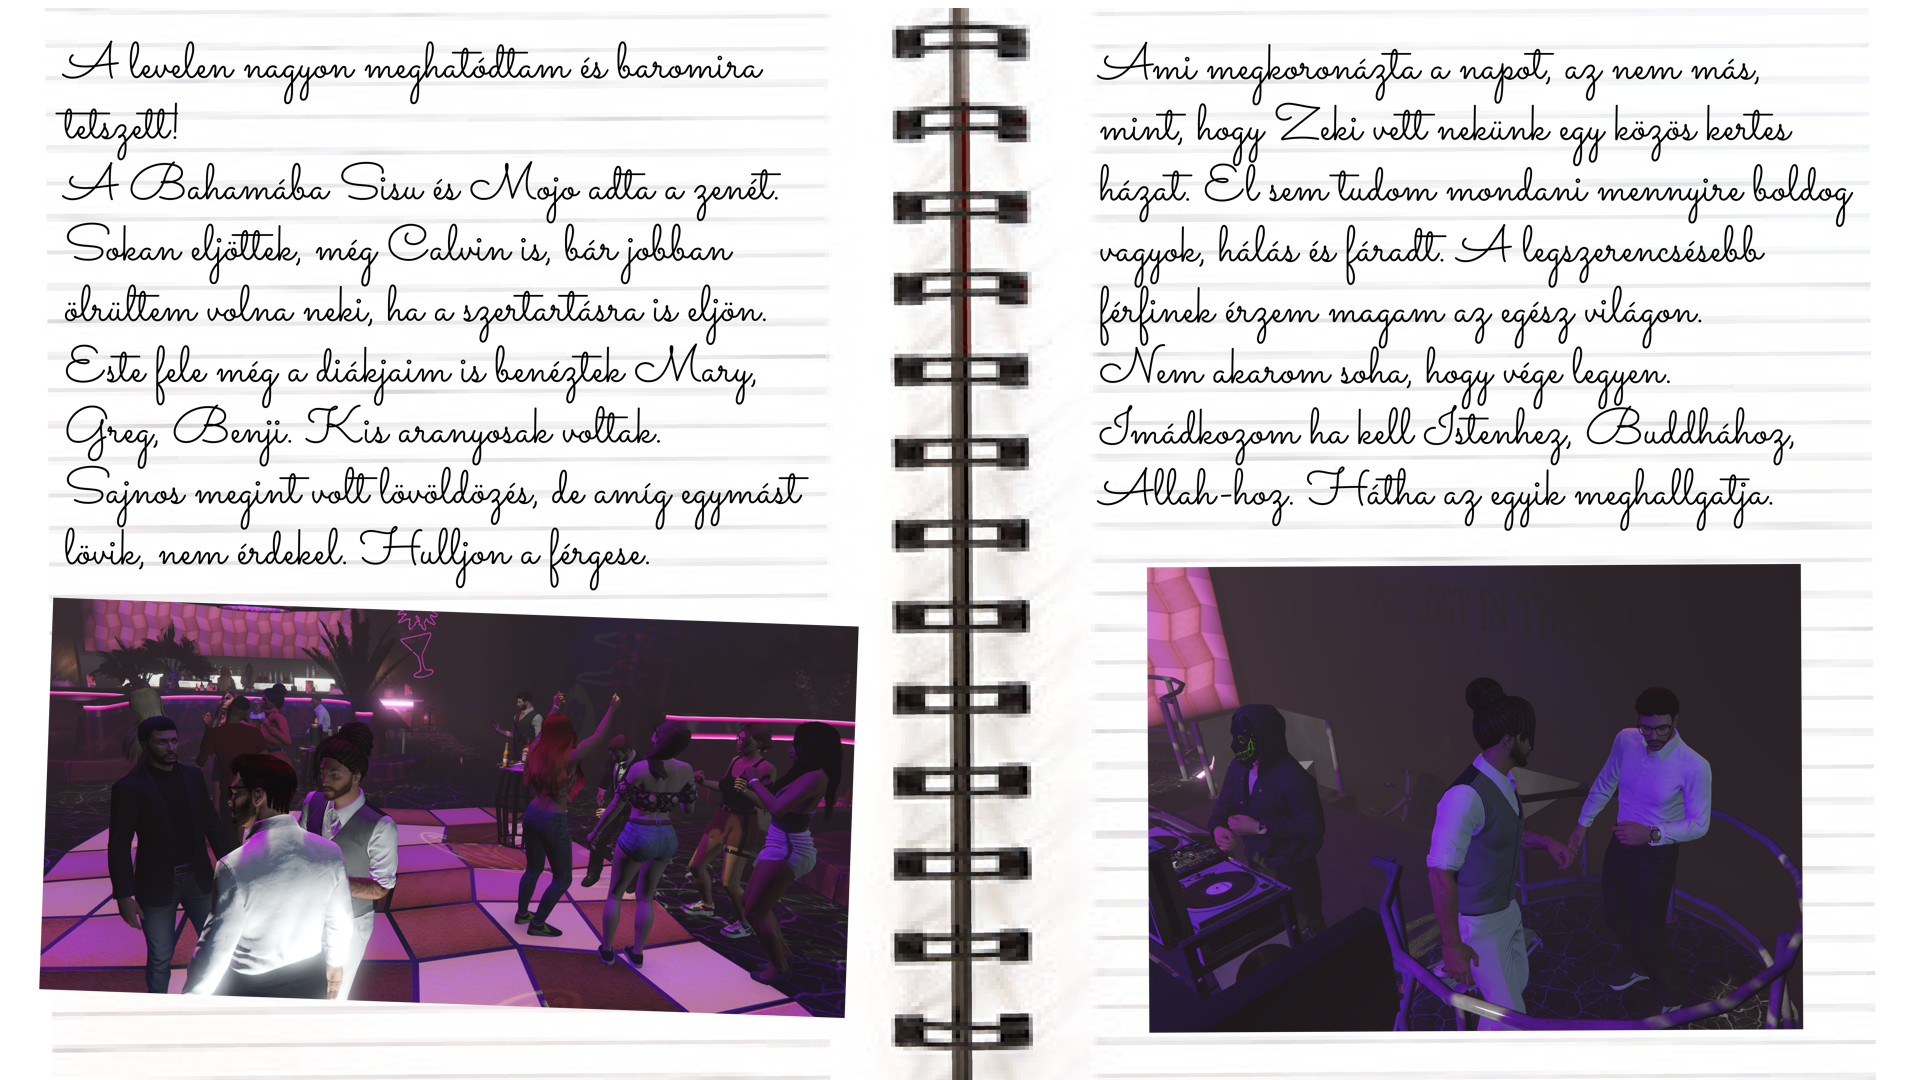 A levelen nagyon meghatódtam és baromira
tetszett!
A Bahamába Sisu és Mojo adta a zenét.
Sokan eljöttek, még Calvin is, bár jobban
ölrültem volna neki, ha a szertartásra is eljön.
Este fele még a diákjaim is benéztek Mary,
Greg, Benji. Kis aranyosak voltak.
Sajnos megint volt lövöldözés, de amíg egymást
lövik, nem érdekel. Hulljon a férgese.
Ami megkoronázta a napot, az nem más,
mint, hogy Zeki vett nekünk egy közös kertes
házat. El sem tudom mondani mennyire boldog
vagyok, hálás és fáradt. A legszerencsésebb
férfinek érzem magam az egész világon.
Nem akarom soha, hogy vége legyen.
Imádkozom ha kell Istenhez, Buddhához,
Allah-hoz. Hátha az egyik meghallgatja.
LOST IN THE